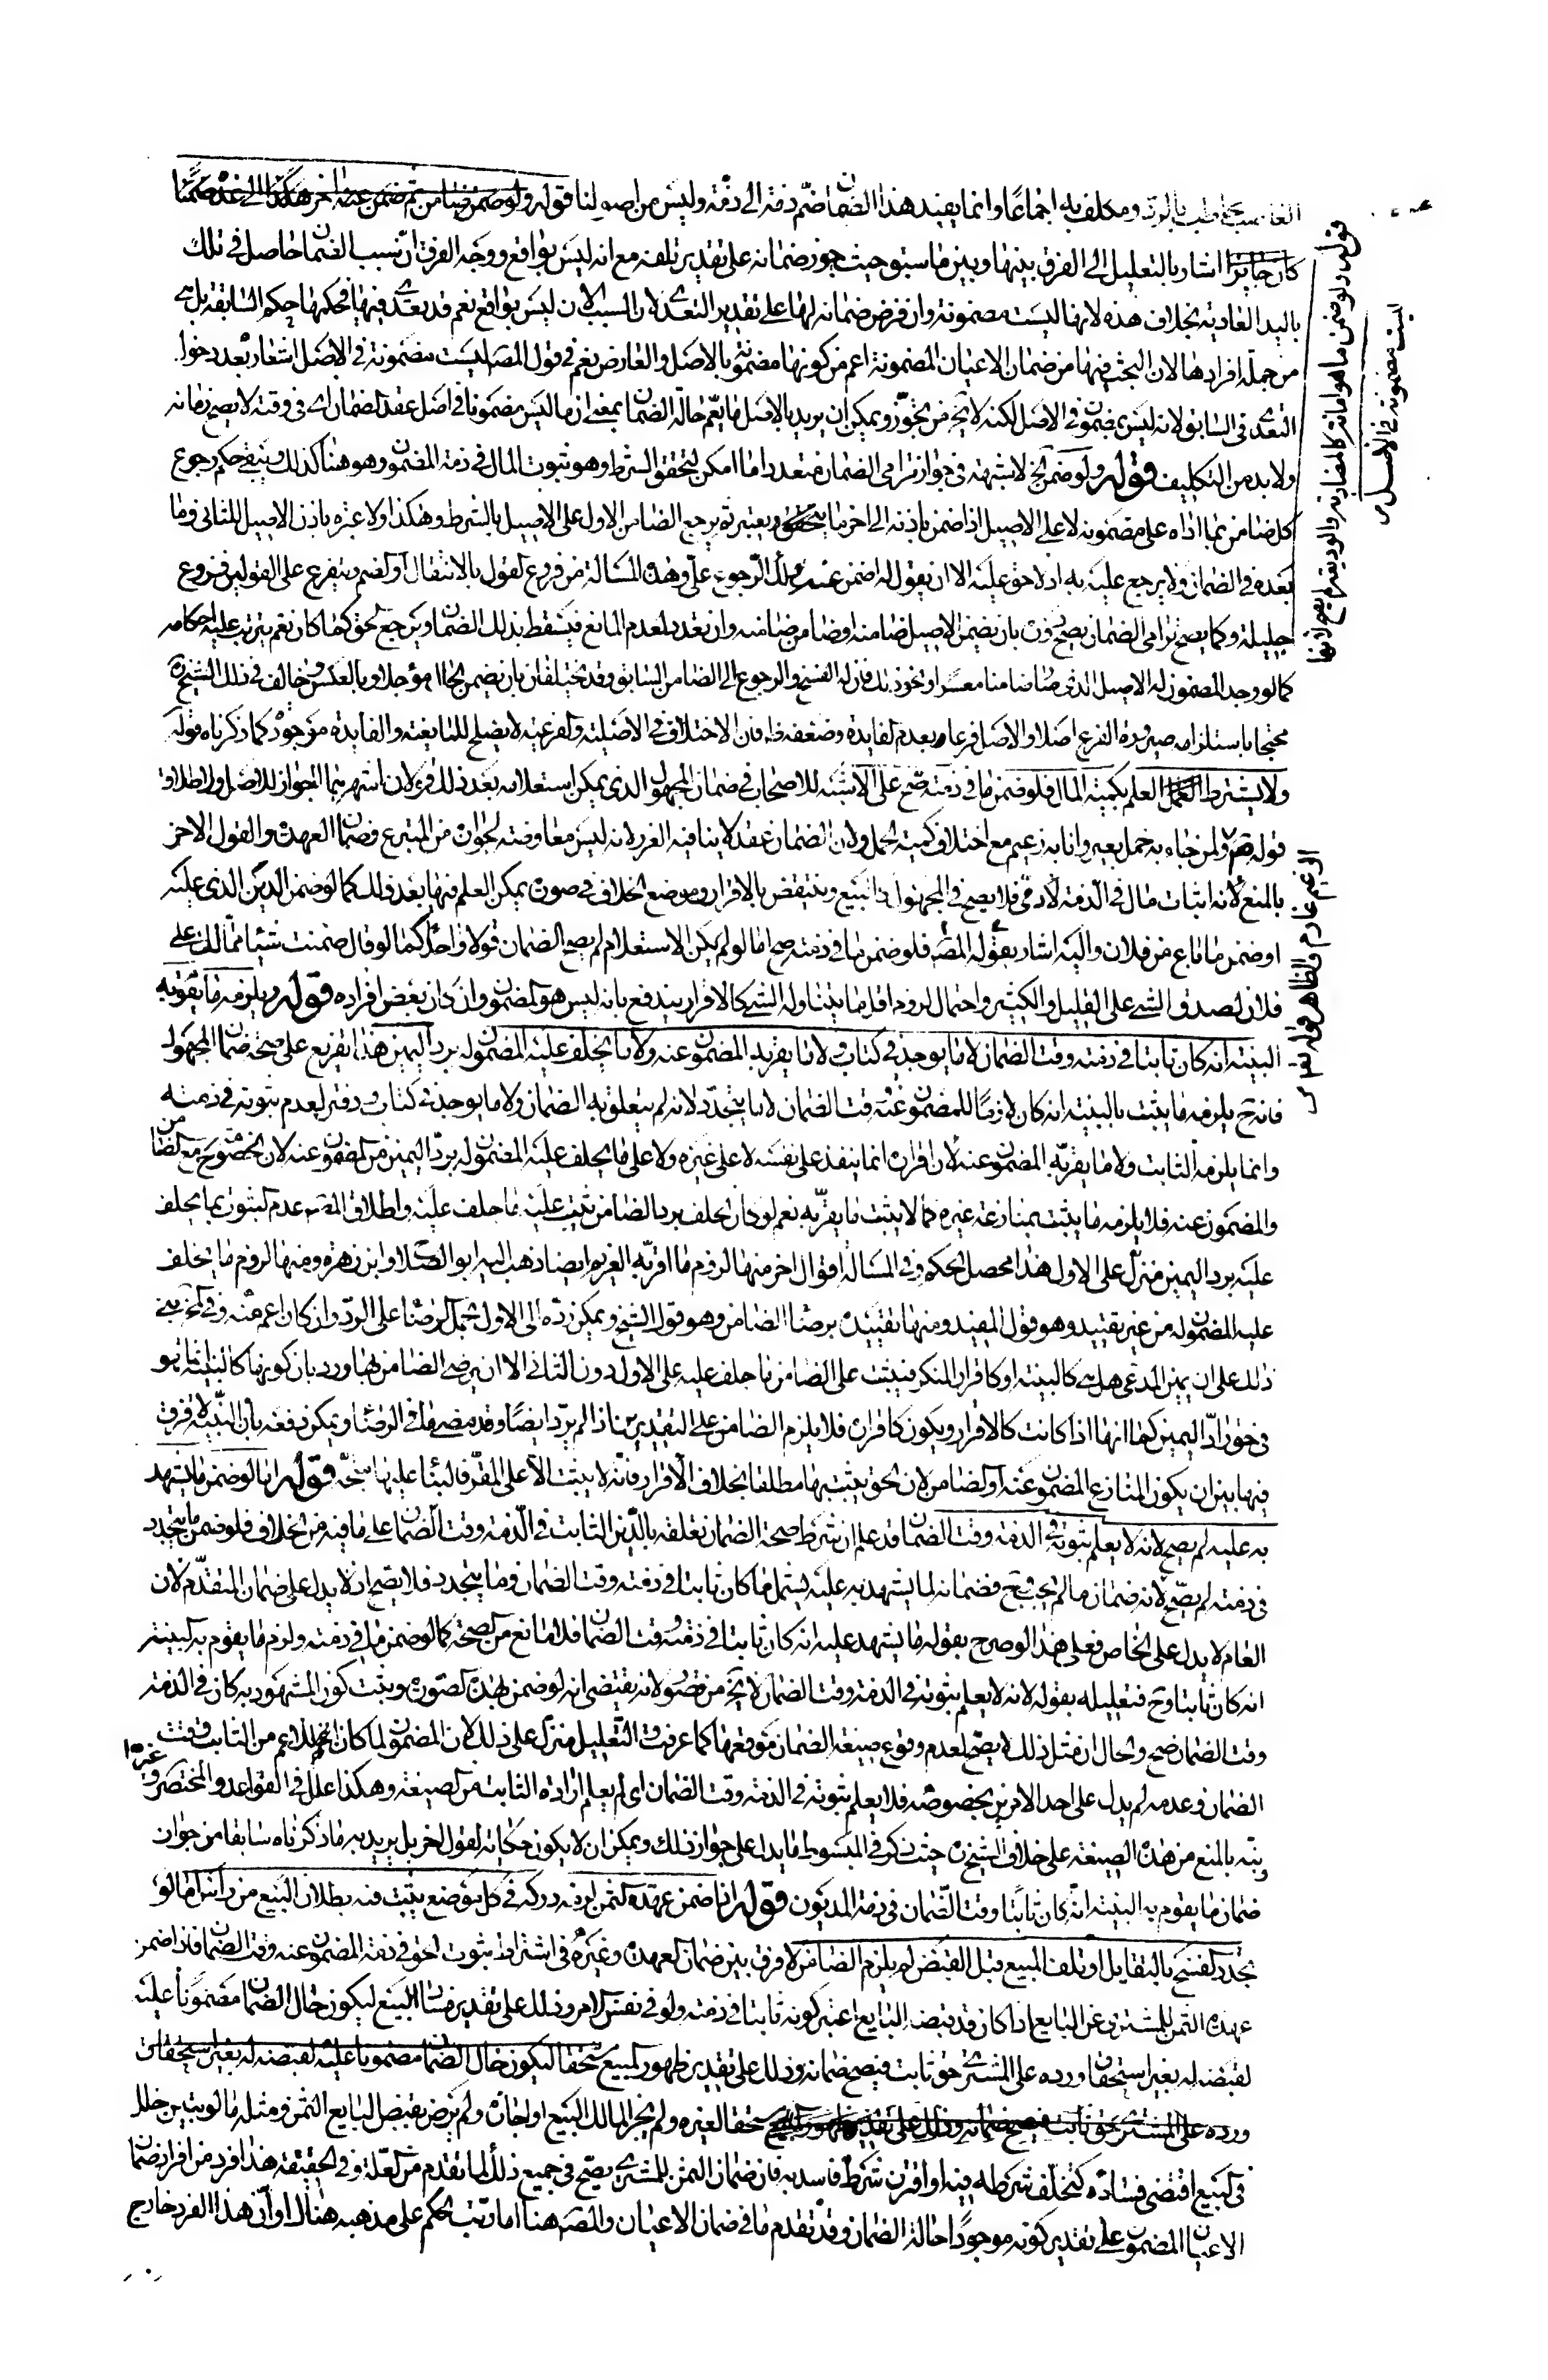 الغاصب مخاطب بالرد ومكلف به اجماعا وانما يفيد هذا الضمان ضم ذمة الى ذمة وليس من اصولنا قوله ولو ضمن ضامن ثم ضمن عنه اخر هكذا الى عدة ضمنا
كان جائزا اشار بالتعليل الى الفرق بينها وبين ما سبق حيث جوز ضمانه على تقدير تلفه مع انه ليس بواقع ووجه الفرق ان سبب الضمان حاصل في تلك
باليد العادية بخلاف هذه لانها ليست مضمونة وان فرض ضمانه لها على تقدير التعدي لان السبب الان ليس بواقع نعم قد يتعدى فيها فحكمها حكم السابقة بل هي
من جملة افرادها لان البحث فيها من ضمان الاعيان المضمونة اعم من كونها مضمونة بالاصل والعارض نعم في قول المص ليست مضمونة في الاصل اشعار بعدم دخول
التعدي في السابق لانه ليس بمضمون في الاصل لكنه لا يخ من تجوز ويمكن ان يريد بالاصل ما يعم حالة الضمان بمعنى ان ما ليس مضمونا في اصل عقد الضمان اي في وقته لا يصح ضمانه
ولا بد من التكليف قوله ولو ضمن الخ لا شبهة في جواز ترامي الضمان متعددا ما امكن لتحقق الشرط وهو ثبوت المال في ذمة المضمون وهو هنا كذلك ويبقى حكم رجوع
كل ضامن بما اداه على مضمونه لا على الاصيل اذا ضمن باذنه الى اخر ما يعتبر ثم يرجع الضامن الاول على الاصيل بالشرط وهكذا ولا عبرة باذن الاصيل للثاني وما
بعده في الضمان ولا يرجع عليه به اذ لا حق عليه الا ان يقول له اضمن عنه ولك الرجوع علي وهذه المسالة من فروع القول بالانتقال او الضم ويتفرع على القولين فروع
جليلة وكما يصح ترامي الضمان يصح دوره بان يضمن الاصيل ضامنه او ضامن ضامنه وان تعدد لعدم المانع فيسقط بذلك الضمان ويرجع الحق كما كان نعم يترتب عليه احكامه
كما لو وجد المضمون له الاصيل الذي صار ضامنا معسرا ونحو ذلك فان له الفسخ والرجوع الى الضامن السابق وقد يختلفان بان يضمن الحال مؤجلا وبالعكس وخالف في ذلك الشيخ ره
محتجا باستلزامه صيرورة الفرع اصلا والاصل فرعا وبعدم الفايدة وضعفه ظ فان الاختلاف في الاصلية والفرعية لا يصلح للمانعية والفايدة موجودة كما ذكرناه قوله
ولا يشترط العلم بكمية المال فلو ضمن ما في ذمته صح على الاشبه للاصحاب في ضمان المجهول الذي يمكن استعلامه بعد ذلك قولان اشهرهما الجواز للاصل ولاطلاق
قوله تع ولمن جاء به حمل بعير وانا به زعيم مع اختلاف كمية الحمل ولان الضمان عقد لا ينافيه الغرر لانه ليس معاوضة لجوازه من المتبرع وضمان العهدة والقول الاخر
بالمنع لانه اثبات مال في الذمة لادمي فلا يصح في المجهول كالبيع وينتقض بالاقرار وموضع الخلاف في صورة يمكن العلم فيها بعد ذلك كما لو ضمن الدين الذي عليه
او ضمن ما باع من فلان واليه اشار بقوله المص فلو ضمن ما في ذمته صح اما لو لم يكن الاستعلام لم يصح الضمان قولا واحدا كما لو قال ضمنت شيئا مما لك على
فلان لصدق الشئ على القليل والكثير واحتمال لزوم اقل ما يتناوله الشئ كالاقرار يندفع بانه ليس هو المضمون وان كان بعض افراده قوله ويلزمه ما تقوم به
البينة انه كان ثابتا في ذمته وقت الضمان لا ما يوجد في كتاب ولا ما يقر به المضمون عنه ولا ما يحلف عليه المضمون له برد اليمين هذا تفريع على صحة ضمان المجهول
فانه ح يلزمه ما يثبت بالبينة انه كان لازما للمضمون عنه وقت الضمان لا ما يتجدد لانه لم يتعلق به الضمان ولا ما يوجد في كتاب ودفتر لعدم ثبوته في ذمته
وانما يلزمه الثابت ولا ما يقر به المضمون عنه لان اقراره انما ينفذ على نفسه لا على غيره ولا على ما يحلف عليه المضمون له برد اليمين من المضمون عنه لان الخصومة ح مع الضامن
والمضمون عنه فلا يلزمه ما يثبت بمنازعة غيره كما لا يثبت ما يقر به نعم لو كان الحلف برد الضامن ثبت عليه ما حلف عليه واطلاق المص عدم الثبوت بما يحلف
عليه برد اليمين منزل على الاول هذا محصل الحكم وفي المسالة اقوال اخر منها لزوم ما اقر به الغريم ايضا ذهب اليه ابو الصلاح وابن زهرة ومنها لزوم ما يحلف
عليه المضمون له من غير تقييد وهو قول المفيد ومنها تقييده برضا الضامن وهو قول الشيخ ويمكن رده الى الاول بحمل الرضا على الرد وان كان اعم منه وفي المختلف بنى
ذلك على ان يمين المدعي هل هي كالبينة او كاقرار المنكر فيثبت على الضامن ما حلف عليه على الاول دون الثاني الا ان يرضى الضامن بها ورد بان كونها كالبينة انما هو
في حق راد اليمين كما انها اذا كانت كالاقرار ويكون كاقراره فلا يلزم الضامن على التقديرين اذا لم يرد ايضا وقد مضى ما في الرضا ويمكن دفعه بان البينة لا فرق
فيها بين ان يكون المنازع المضمون عنه او الضامن لان الحق يثبت بها مطلقا بخلاف الاقرار فانه لا يثبت الا على المقر فالبناء عليها متجه قوله اما لو ضمن ما يشهد
به عليه لم يصح لانه لا يعلم ثبوته في الذمة وقت الضمان قد علم ان شرط صحة الضمان تعلقه بالدين الثابت في الذمة وقت الضمان على ما فيه من الخلاف فلو ضمن ما يتجدد
في ذمته لم يصح لانه ضمان ما لم يجب وح فضمانه لما يشهد به عليه يشمل ما كان ثابتا في ذمته وقت الضمان وما يتجدد فلا يصح اذ لا يدل على ضمان المتقدم لان
العام لا يدل على الخاص فعلى هذا لو صرح بقوله ما يشهد عليه انه كان ثابتا في ذمته وقت الضمان فلا مانع من الصحة كما لو ضمن ما في ذمته ولزم ما يقوم به البينة
انه كان ثابتا وح فتعليله بقوله لانه لا يعلم ثبوته في الذمة وقت الضمان لا يخ من قصور لانه يقتضي انه لو ضمن بهذه الصورة وثبت كون المشهود به كان في الذمة
وقت الضمان صح والحال ان مثل ذلك لا يصح لعدم وقوع صيغة الضمان موقعها كما عرفت والتعليل منزل على ذلك لان المضمون لما كان اعم من الثابت وقت
الضمان وعدمه لم يدل على احد الامرين بخصوصه فلا يعلم ثبوته في الذمة وقت الضمان اي لم يعلم ارادة الثابت من الصيغة وهكذا علل في القواعد والمختصر وغيرهما
ونبه بالمنع من هذه الصيغة على خلاف الشيخ ره حيث ذكر في المبسوط ما يدل على جواز ذلك ويمكن ان لا يكون حكاية لقول اخر بل يريد به ما ذكرناه سابقا من جواز
ضمان ما يقوم به البينة انه كان ثابتا وقت الضمان في ذمة المديون قوله اذا ضمن عهدة الثمن لزمه دركه في كل موضع يثبت فيه بطلان البيع من راس اما لو
تجدد الفسخ بالتقايل او تلف المبيع قبل القبض لم يلزم الضامن لا فرق بين ضمان العهدة وغيره في اشتراط ثبوت الحق في ذمة المضمون عنه وقت الضمان فاذا ضمن
عهدة الثمن للمشتري عن البايع اذا كان قد قبضه البايع اعتبر كونه ثابتا في ذمته ولو في نفس الامر وذلك على تقدير فساد البيع ليكون حال الضمان مضمونا عليه
لقبضه له بغير استحقاق ورده على المشتري حق ثابت فيصح ضمانه وذلك على تقدير ظهور المبيع مستحقا ليكون حال الضمان مضمونا عليه لقبضه له بغير استحقاق
ورده على المشتري حق ثابت فيصح ضمانه وذلك على تقدير ظهور المبيع مستحقا لغيره ولم يجز المالك البيع او اجازه ولم يرض بقبض البايع الثمن ومثله ما لو تبين خلل
في البيع اقتضى فساده كتخلف شرط له فيه او اقترن شرط فاسد به فان ضمان الثمن للمشتري يصح في جميع ذلك لما تقدم من العلة وفي الحقيقة هذا فرد من افراد ضمان
الاعيان المضمونة على تقدير كونه موجودا حالة الضمان وقد تقدم ما في ضمان الاعيان والمص هنا اما رتب الحكم على مذهبه هناك او ان هذا الفرد خارج
قوله ولو ضمن ما هو امانة كالمضاربة والوديعة لم يصح لانها
ليست مضمونة في الاصل ص
الزعيم غارم والظاهر قوله ص